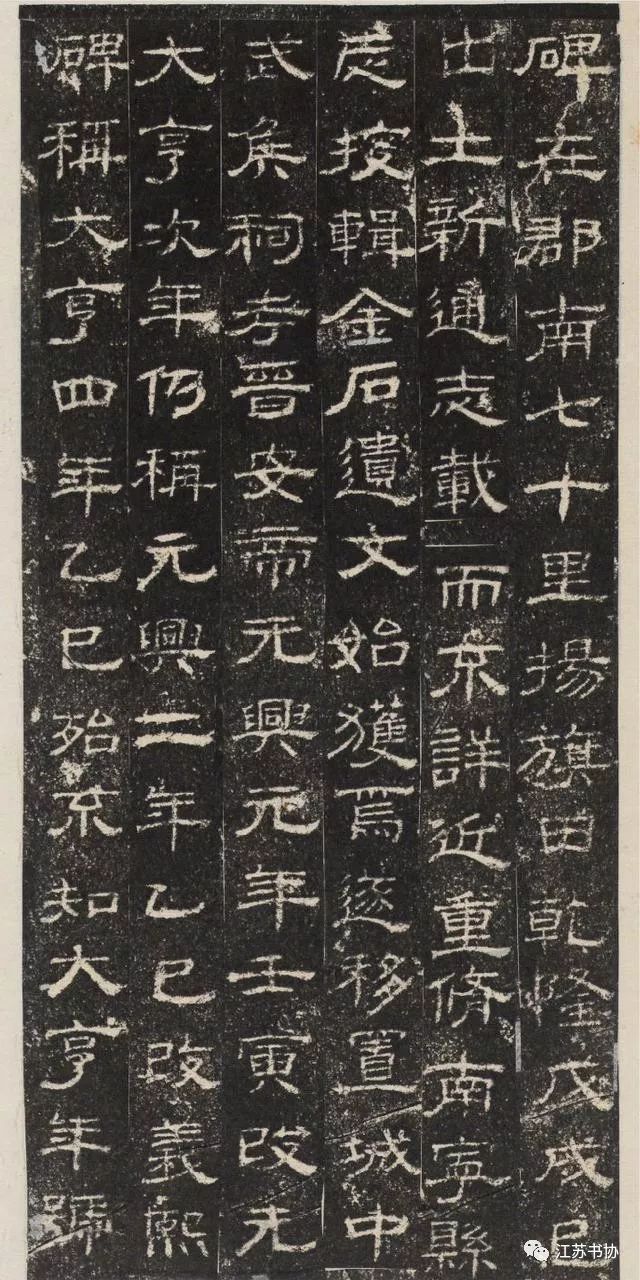 碑在郡南七十里揚旗田乾隆戊戌已
出土新通志載而不詳近重脩南寧縣
志搜輯金石遺文始獲焉遂移置城中
武矦祠考晉安帝元興元年壬寅改元
大亨次年仍稱元興二年乙巳改義熙
碑稱大亨四年乙巳殆不知大亨年號
江苏书协